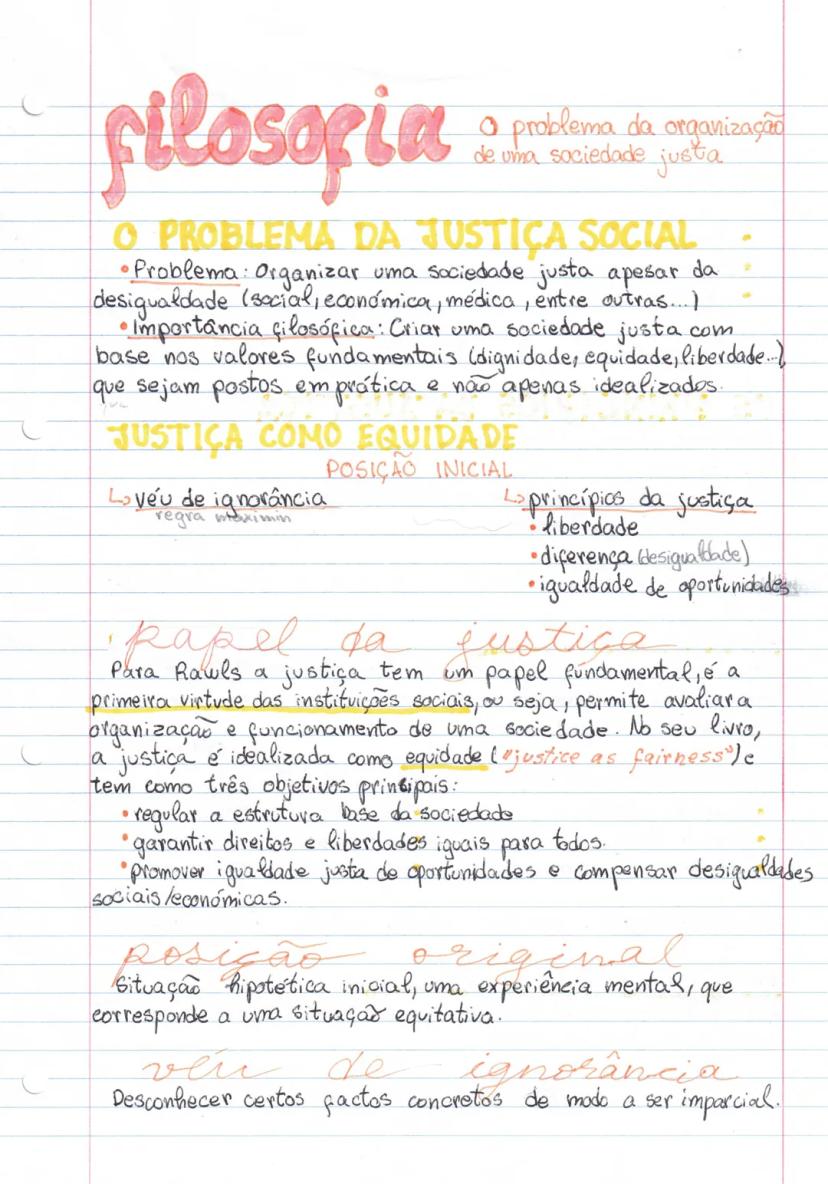 filosofia
O problema da organização
de uma sociedade justa
O PROBLEMA DA JUSTIÇA SOCIAL
• Problema: Organizar uma sociedade justa apesar da
desigualdade (social, económica, médica, entre outras...)
• Importância filosófica: Criar uma sociedade justa com
base nos valores fundamentais (dignidade, equidade, liberdade...),
que sejam postos em prática e não apenas idealizados.
JUSTIÇA COMO EQUIDADE
POSIÇÃO INICIAL
↳ véu de ignorância
regra maximin
↳ princípios da justiça
• liberdade
• diferença (desigualdade)
• igualdade de oportunidades
papel da justiça
Para Rawls a justiça tem um papel fundamental, é a
primeira virtude das instituições sociais, ou seja, permite avaliar a
organização e funcionamento de uma sociedade. No seu livro,
a justiça é idealizada como equidade ("justice as fairness") e
tem como três objetivos principais:
• regular a estrutura base da sociedade
• garantir direitos e liberdades iguais para todos.
• promover igualdade justa de oportunidades e compensar desigualdades
sociais/económicas.
posição original
Situação hipotética inicial, uma experiência mental, que
corresponde a uma situação equitativa.
véu de ignorância
Desconhecer certos factos concretos de modo a ser imparcial.